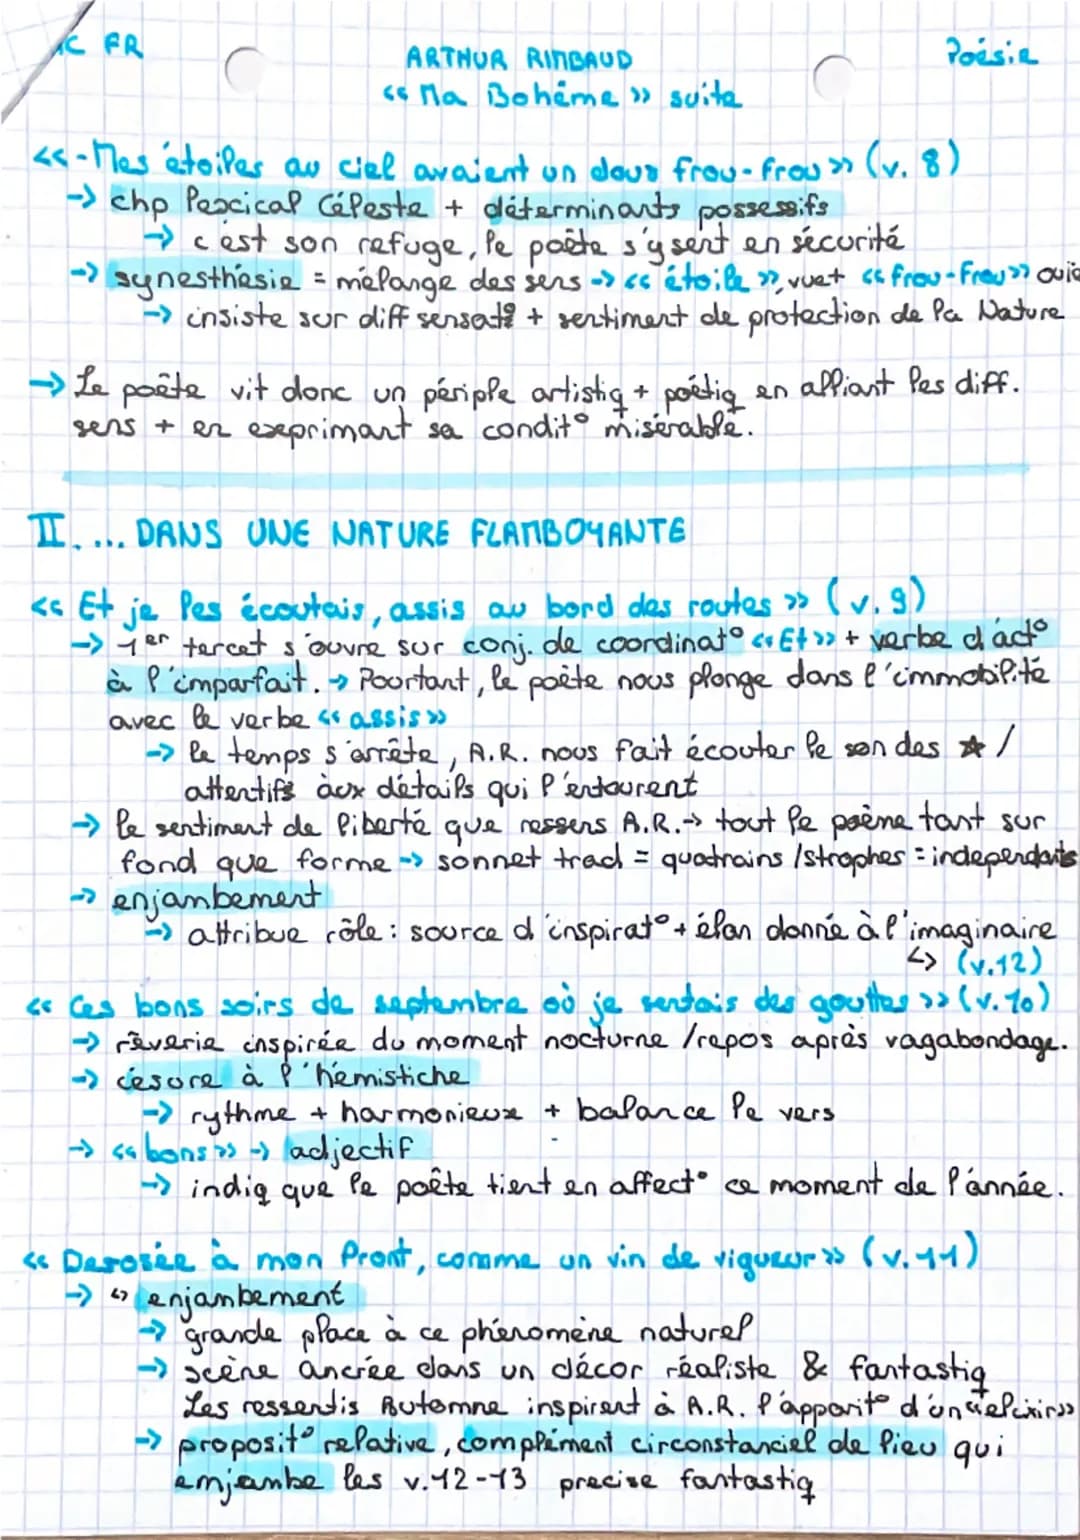 FR
ARTHUR RIMBAUD
Poésie
<< Ma Bohême >> suite
<<-Mes étoiles au ciel avaient un doux frou-frou>> (v. 8)
-> chp lexical Céleste + déterminants possessifs
-> c'est son refuge, le poète s'y sent en sécurité
-> synesthésie = mélange des sens -> << étoile >>, vue + << frou-frou>> ouïe
-> insiste sur diff sensat° + sentiment de protection de la Nature
-> Le poête vit donc un périple artistiq + poétiq en alliant les diff.
sens + en exprimant sa condit° misérable.
II. ... DANS UNE NATURE FLAMBOYANTE
<< Et je les écoutais, assis au bord des routes >> (v.9)
-> 1er tercet s'ouvre sur conj. de coordinat° <<Et>> + verbe d'act°
à l'imparfait. -> Pourtant, le poête nous plonge dans l'immobilité
avec le verbe << assis>>
-> le temps s'arrête, A.R. nous fait écouter le son des ★ /
attentifs aux détails qui l'entourent
-> le sentiment de liberté que ressens A.R.-> tout le poème tant sur
fond que forme -> sonnet trad = quatrains /strophes = independants
-> enjambement
-> attribue rôle : source d'inspirat° + élan donné à l'imaginaire
↳ (v.12)
<< Ces bons soirs de septembre où je sentais des gouttes >> (v.10)
-> rêverie inspirée du moment nocturne /repos après vagabondage.
-> césure à l'hémistiche
-> rythme + harmonieux + balance le vers
-> <<bons>> -> adjectif
-> indiq que le poête tient en affect° ce moment de l'année.
<< De rosée à mon front, comme un vin de vigueur>> (v.11)
-> ↳ enjambement
-> grande place à ce phénomène naturel
-> scène ancrée dans un décor réaliste & fantastiq
Les ressentis Automne inspirent à A.R. l'apparit° d'un <<elixir>>
-> proposit° relative, complément circonstanciel de lieu qui
enjambe les v.12-13 precise fantastiq